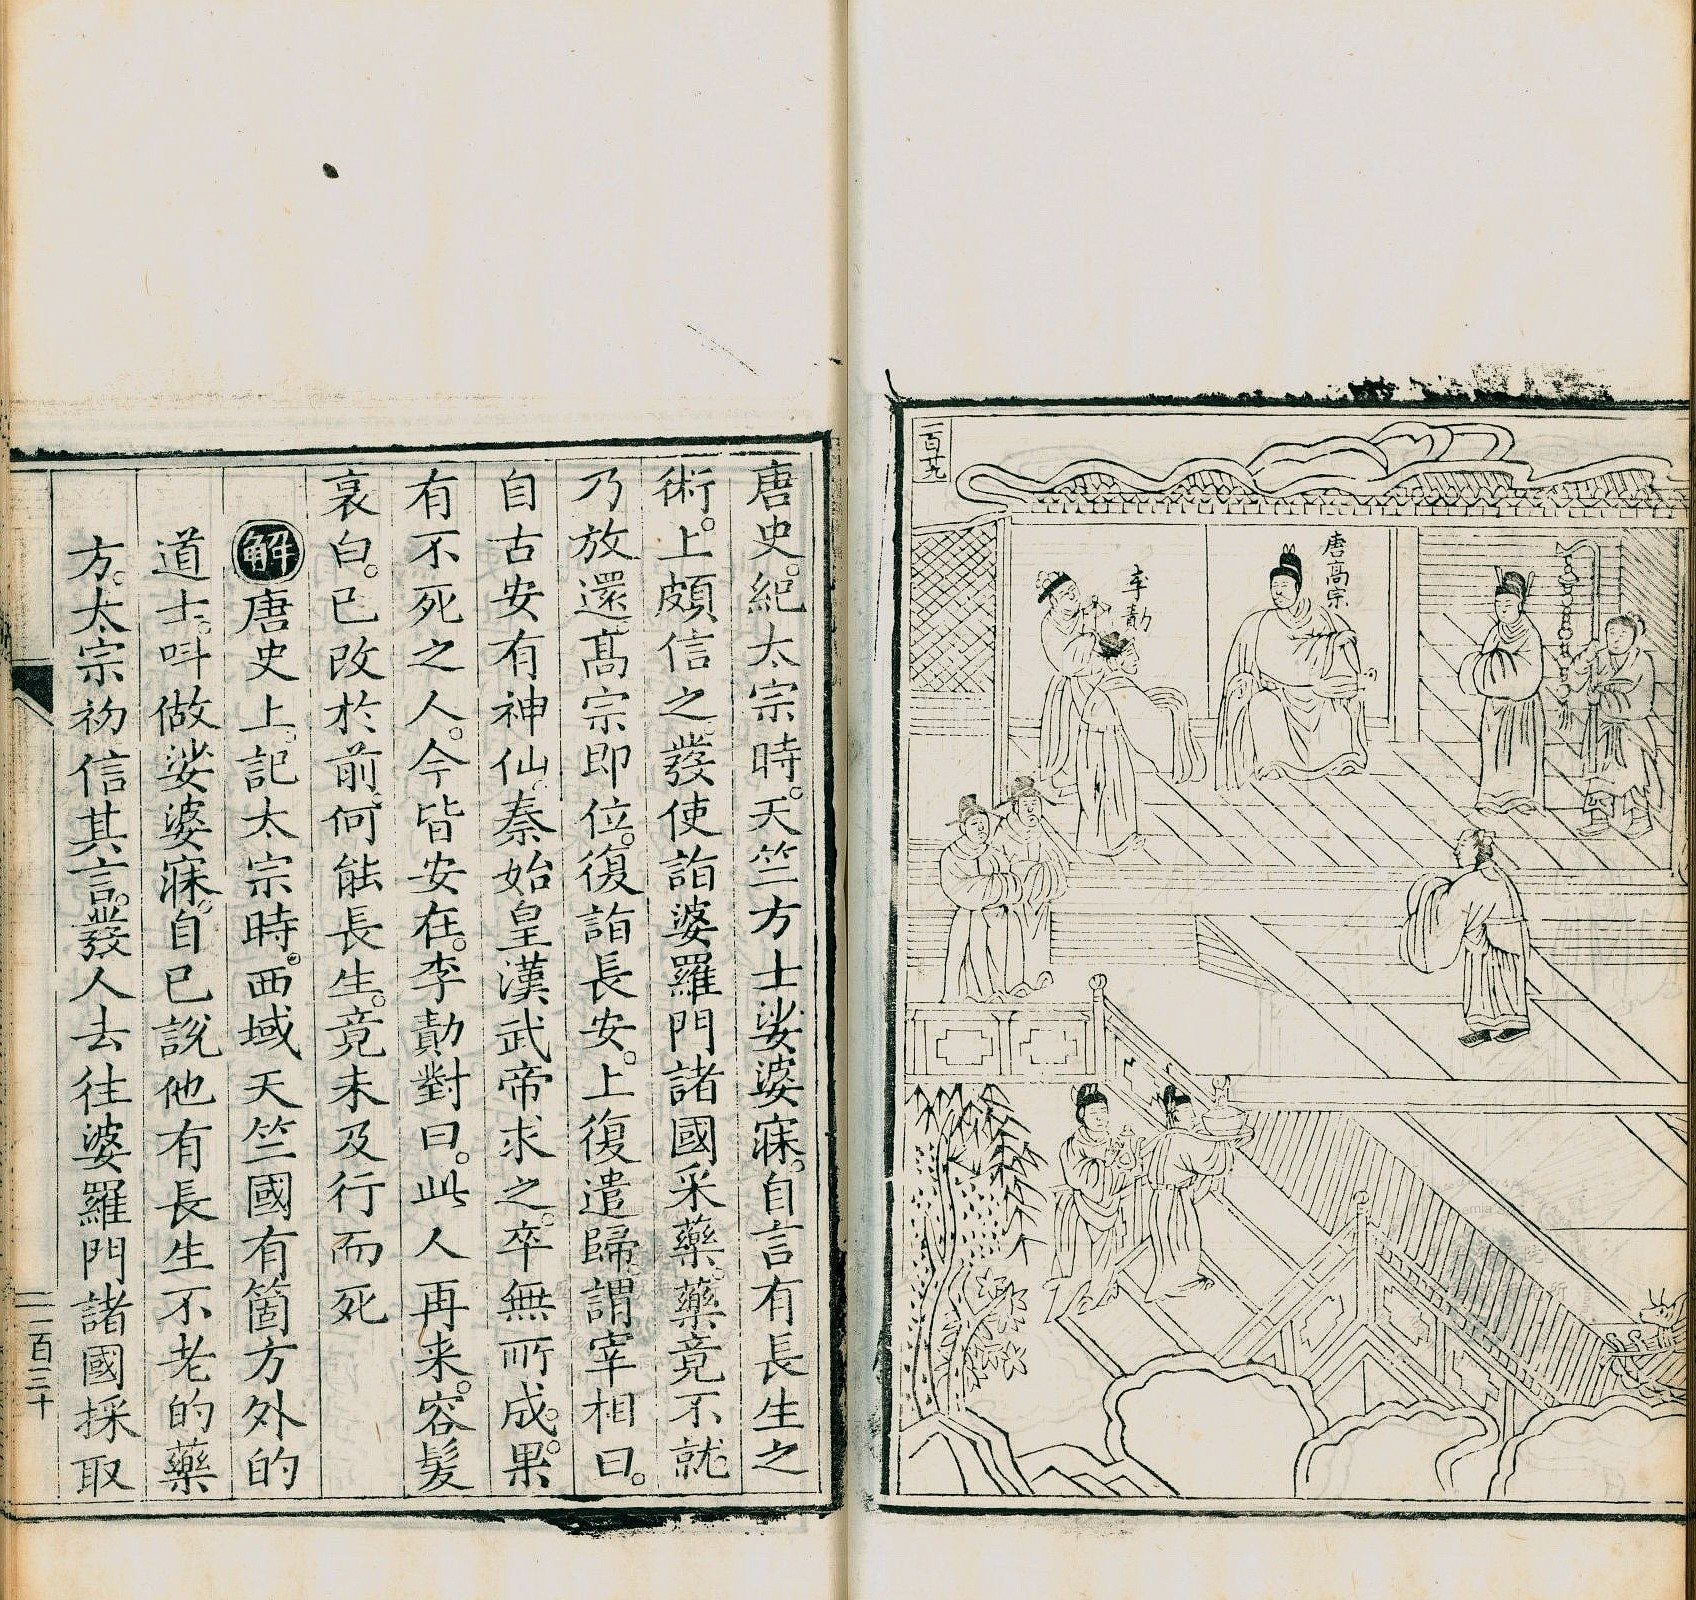 一百廿九
唐高宗
李勣
唐史。紀太宗時。天竺方士娑婆寐。自言有長生之
術。上頗信之。發使詣婆羅門諸國采藥。藥竟不就
乃放還。髙宗即位。復詣長安。上復遣歸。謂宰相曰。
自古安有神仙。秦始皇漢武帝求之。卒無所成。果
有不死之人。今皆安在。李勣對曰。此人再来。容髪
衰白。已改於前。何能長生。竟未及行而死
解唐史上。記太宗時。西域天竺國有箇方外的
道士。呌做娑婆寐。自已說他有長生不老的藥
方。太宗初信其言。發人去往婆羅門諸國採取
二百三十